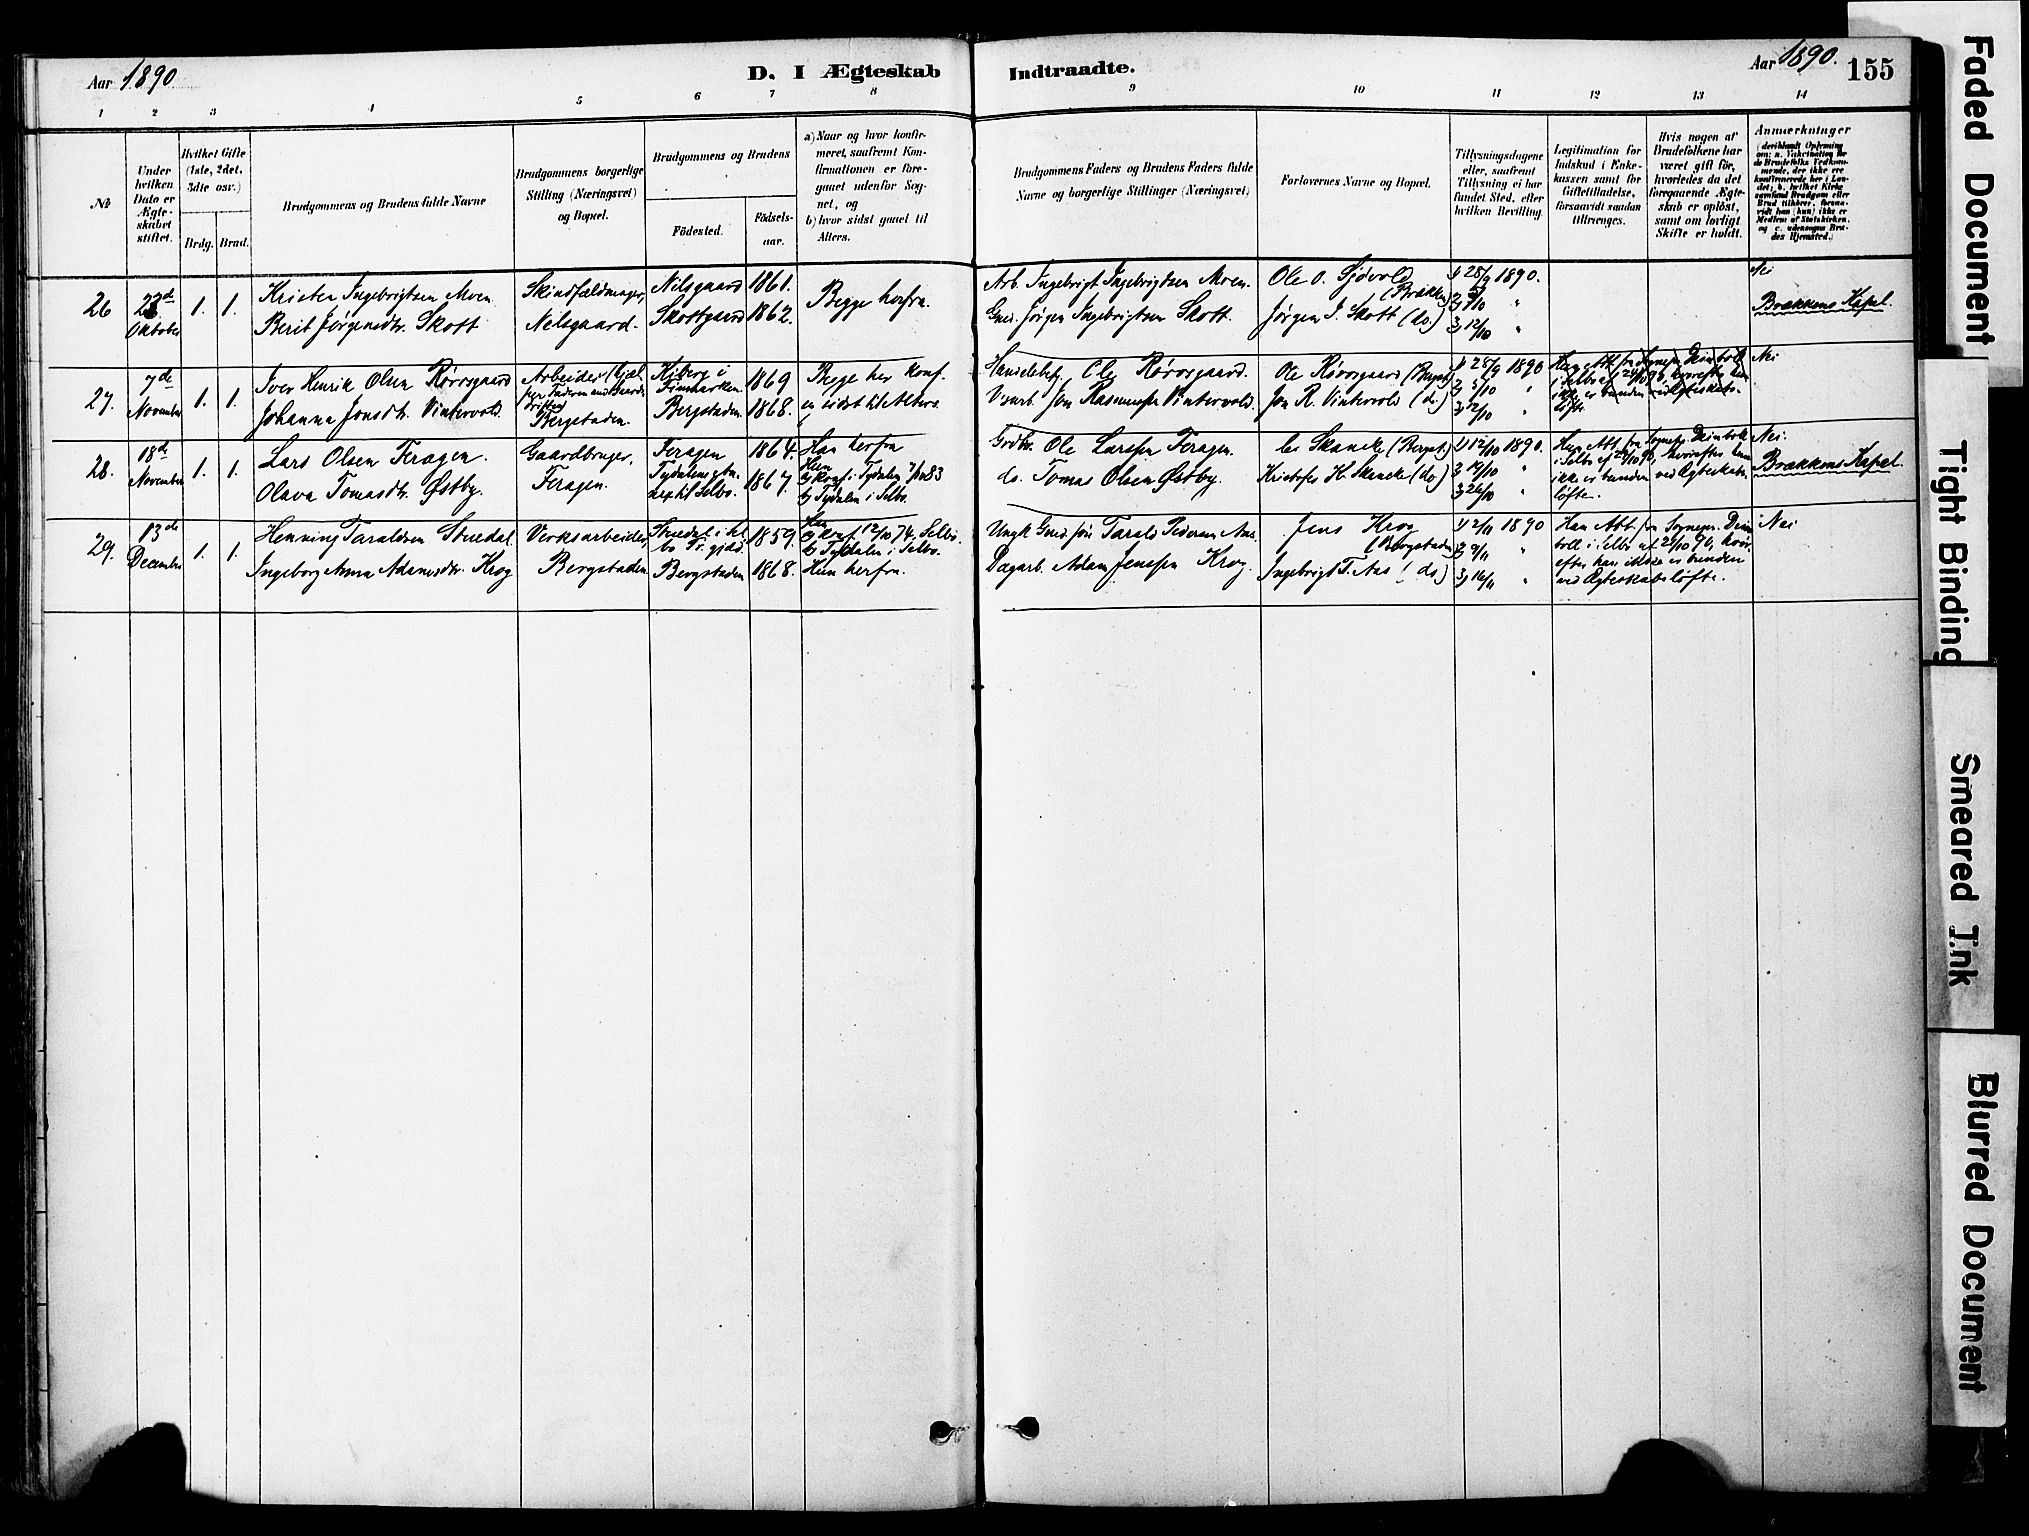 Aar 1890
D. I Ægteskab
Indtraadte.
Aar 1890.
155
1 2 3 4 5 6 7 8 9 10 11 12 13 14
No
Under
hvilken
Dato er
Ægte-
skabet
stiftet.
Hvilket Gifte
(1ste, 2det,
3dte osv.)
Brdg. Brud.
Brudgommens og Brudens fulde Navne
Brudgommens borgerlige
Stilling (Næringsvei)
og Bopæl.
Brudgommens og Brudens
Födested.
Födsels-
aar.
a) Naar og hvor konfir-
meret, saafremt Kon-
firmationen er fore-
gaaet udenfor Sog-
net, og
b) hvor sidst gaaet til
Alters.
Brudgommens Faders og Brudens Faders fulde
Navne og borgerlige Stillinger (Næringsvei)
Forlovernes Navne og Bopæl.
Tillysningsdagene
eller, saafremt
Tillysning ei har
fundet Sted, efter
hvilken Bevilling.
Legitimation for
Indskud i Enke-
kassen samt for
Giftetilladelse,
forsaavidt saadan
tiltrænges.
Hvis nogen af
Brudefolkene har
været gift för,
hvorledes da det
foregaaende Ægte-
skab er oplöst,
samt om lovligt
Skifte er holdt.
Anmærkninger
(deriblandt Oplysning
om: a. Vakcination for
de Brudefolks Vedkom-
mende, der ikke ere
konfirmerede her i Lan-
det; b. hvilket Kirke-
samfund Brudgom eller
Brud tilhører, forsaa-
vidt han (hun) ikke er
Medlem af Statskirken,
og c. udensogns Bru-
des Hjemsted.)
26
23d
Oktober
1. 1.
Krister Ingebrigtsen Moen
Berit Jørgensdtr. Skott
Skindfældmager,
Nilsgaard.
Nilsgaard 1861.
Skottgaard 1862.
Begge herfra.
Arb. Ingebrigt Ingebrigtsen Moen.
Grd. Jørgen Ingebrigtsen Skott.
Ole O. Sjövold
(Brækken)
Jørgen J. Skott (do.)
1) 28/9 1890.
2) 5/10 "
3) 12/10 "
Nei
Brækkens Kapel.
27.
7de
November
1. 1.
Iver Henrik Olsen Rørosgaard
Johanna Jonsdtr. Vintervold.
Arbeider (hjæl-
per Faderen med Gaards-
driften)
Bergstaden.
Kiberg i
Finmarken 1869
Bergstaden 1868.
Begge her konf.
og sidst til Alters.
Handelsbetj. Ole Rørosgaard.
Verksarb. Jon Rasmussen Vintervold.
Ole Rørosgaard (Bergst.)
Jon R. Vintervold (do.)
1) 28/9 1890
2) 5/10 "
3) 12/10 "
Nei
28.
18de
November
1. 1.
Lars Olsen Feragen.
Olava Tomasdtr. Østby.
Gaardbruger,
Feragen.
Feragen 1864.
Tydalens an-
nex til Selbo. 1867.
Han herfra
Hun
a) konf. i Tydalen 7/10 83
b) Tydalen i Selbo.
Grdbr. Ole Larssen Feragen.
do. Tomas Olsen Østby.
Skancke (Bergst.)
Kristofer H. Skancke (do.)
1) 12/10 1890.
2) 19/10 "
3) 26/10 "
Hun Att. fra Sognepr. Deinboll
i Selbo af 24/10 90, hvorefter hun
ikke er bunden ved Ægteskabs-
løfte.
Nei.
Brækkens Kapel.
29.
13de
December
1. 1.
Henning Taraldsen Stuedal
Ingeborg Anna Adamsdtr. Krog
Verksarbeider,
Bergstaden
Stuedal i Sel-
bo Pr.gjld. 1859.
Bergstaden 1868.
Han
a) konf. 12/10 74, Selbo.
b) Tydalen i Selbo.
Hun herfra.
Ungk. Grd. Tarald Pedersen Aas.
Dagarb. Adam Jenssen Krog.
Jens Krog
(Bergstaden)
Ingebrigt T. Aas (do.)
1) 2/11 1890
2) 9/11 "
3) 16/11 "
Han Att. fra Sognepr. Dein-
boll i Selbo af 25/10 90, hvor-
efter han ikke er bunden
ved Ægteskabsløfte.
Nei
Faded Document
Tight Binding
Smeared Ink
Blurred Document